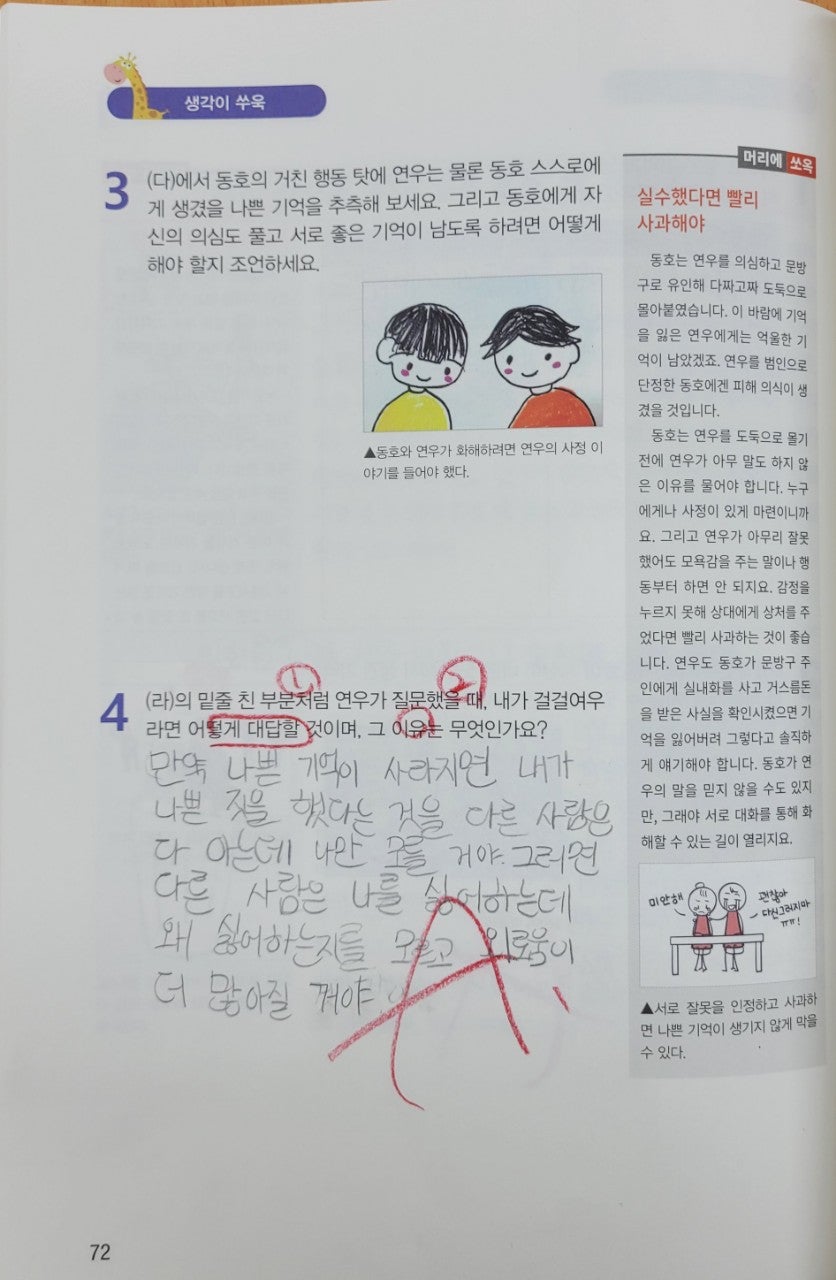 생각이 쑤욱
3
(다)에서 동호의 거친 행동 탓에 연우는 물론 동호 스스로에
게 생겼을 나쁜 기억을 추측해 보세요. 그리고 동호에게 자
신의 의심도 풀고 서로 좋은 기억이 남도록 하려면 어떻게
해야 할지 조언하세요.
▲동호와 연우가 화해하려면 연우의 사정 이
야기를 들어야 했다.
①
②
4
(라)의 밑줄 친 부분처럼 연우가 질문했을 때, 내가 걸걸여우
라면 어떻게 대답할 것이며, 그 이유는 무엇인가요?
만약 나쁜 기억이 사라지면 내가
나쁜 짓을 했다는 것을 다른 사람은
다 아는데 나만 모를 거야. 그러면
다른 사람은 나를 싫어하는데
왜 싫어하는지를 모르고 외로움이
더 많아질 꺼야
A
머리에 쏘옥
실수했다면 빨리
사과해야
동호는 연우를 의심하고 문방
구로 유인해 다짜고짜 도둑으로
몰아붙였습니다. 이 바람에 기억
을 잃은 연우에게는 억울한 기
억이 남았겠죠. 연우를 범인으로
단정한 동호에겐 피해 의식이 생
겼을 것입니다.
동호는 연우를 도둑으로 몰기
전에 연우가 아무 말도 하지 않
은 이유를 물어야 합니다. 누구
에게나 사정이 있게 마련이니까
요. 그리고 연우가 아무리 잘못
했어도 모욕감을 주는 말이나 행
동부터 하면 안 되지요. 감정을
누르지 못해 상대에게 상처를 주
었다면 빨리 사과하는 것이 좋습
니다. 연우도 동호가 문방구 주
인에게 실내화를 사고 거스름돈
을 받은 사실을 확인시켰으면 기
억을 잃어버려 그렇다고 솔직하
게 얘기해야 합니다. 동호가 연
우의 말을 믿지 않을 수도 있지
만, 그래야 서로 대화를 통해 화
해할 수 있는 길이 열리지요.
미안해
괜찮아
다신그러지마
ㅠㅠ!
▲서로 잘못을 인정하고 사과하
면 나쁜 기억이 생기지 않게 막을
수 있다.
72